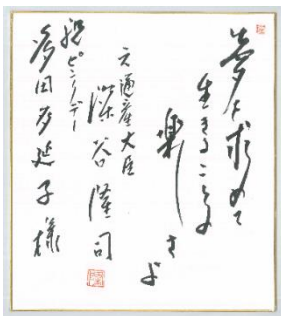 夢を求めて
生きることの
楽しさよ
元通産大臣
深谷隆司
祝ピンクデー
多田多延子様